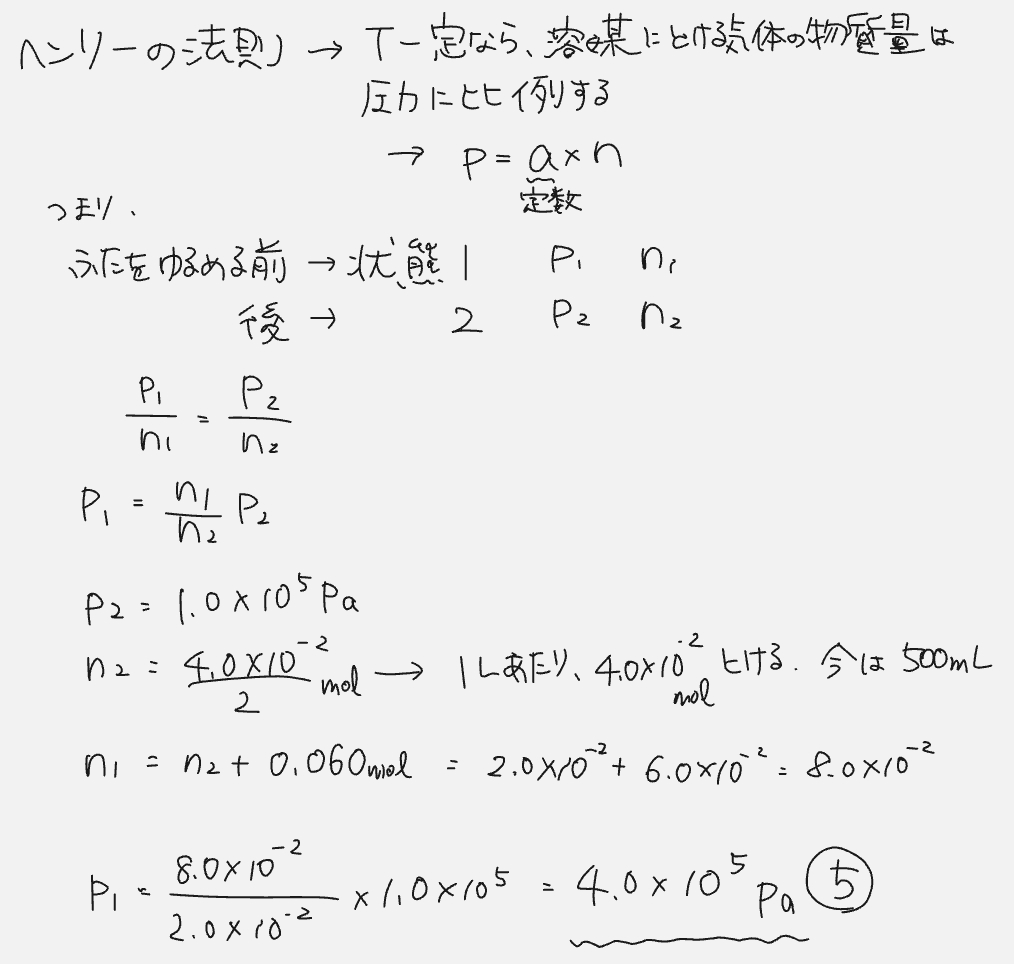 ヘンリーの法則 → T一定なら、溶媒にとける気体の物質量は
圧力に比例する
→ P = a × n
定数
つまり、
ふたをゆるめる前 → 状態 1 P₁ n₁
後 → 2 P₂ n₂
P₁/n₁ = P₂/n₂
P₁ = n₁/n₂ P₂
P₂ = 1.0 × 10⁵ Pa
n₂ = 4.0×10⁻²/2 mol → 1Lあたり、4.0×10⁻² mol とける. 今は 500mL
n₁ = n₂ + 0.060mol = 2.0×10⁻² + 6.0×10⁻² = 8.0×10⁻²
P₁ = 8.0×10⁻²/2.0×10⁻² × 1.0×10⁵ = 4.0 × 10⁵ Pa ⑤